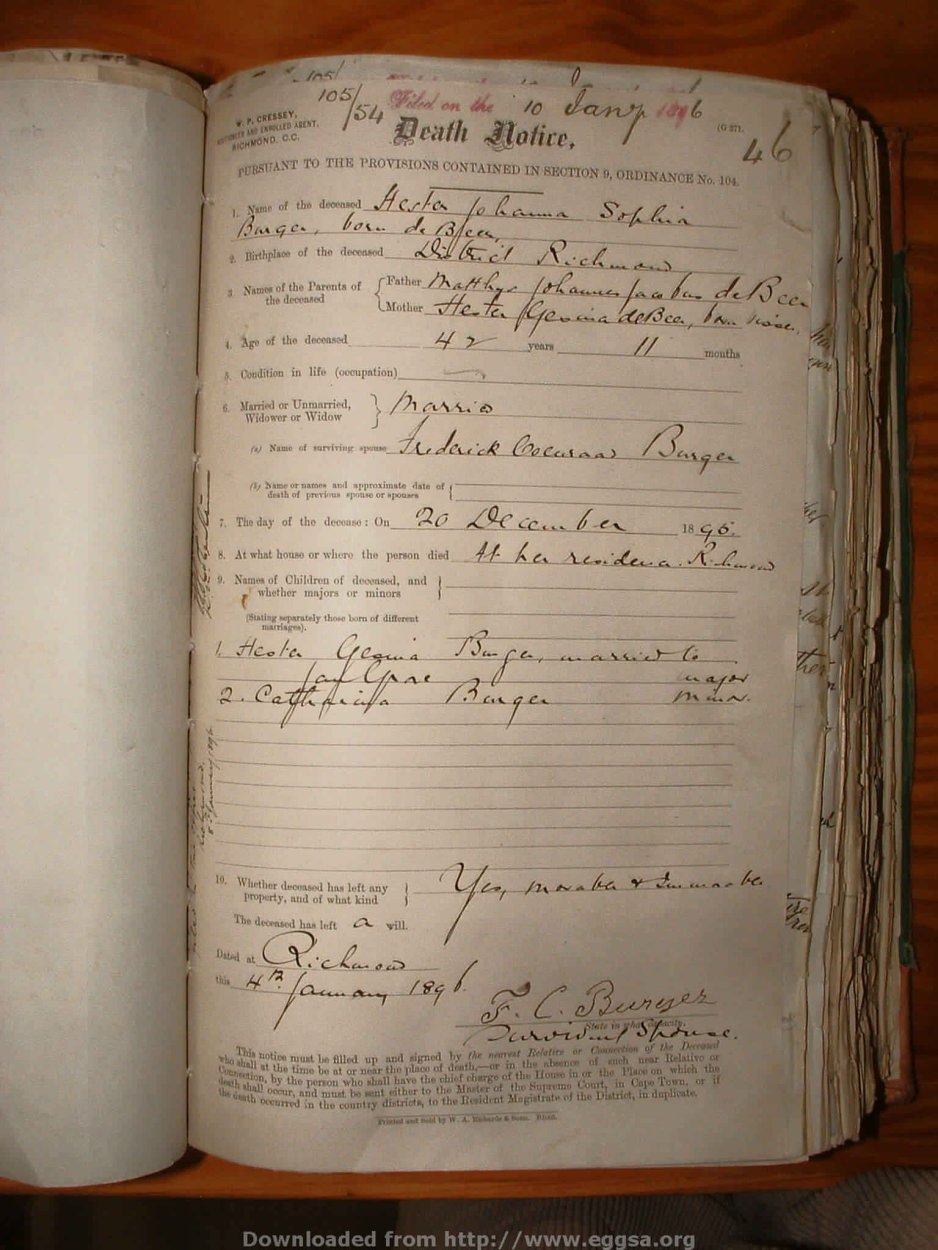 105/54 Filed on the 10 Jany 1896
W. P. CRESSEY,
AND ENROLLED AGENT.
RICHMOND. C.C.
Death Notice.
(G 271.
46
PURSUANT TO THE PROVISIONS CONTAINED IN SECTION 9, ORDINANCE No. 104.
1. Name of the deceased Hester Johanna Sophia
Burger, born de Beer,
2. Birthplace of the deceased District Richmond
3 Names of the Parents of the deceased { Father Matthys Johannes Jacobus de Beer
Mother Hester Gesina de Beer, born
4. Age of the deceased 42 years 11 months
5. Condition in life (occupation)
6. Married or Unmarried, Widower or Widow } Married
(a) Name of surviving spouse Frederick Coenraad Burger
(b) Name or names and approximate date of death of previous spouse or spouses {
7. The day of the decease: On 20 December 1895.
8. At what house or where the person died At her residence Richmond
9. Names of Children of deceased, and whether majors or minors }
(Stating separately those born of different marriages).
1. Hester Gesina Burger, married to
major
2. Catharina Burger minor.
10. Whether deceased has left any property, and of what kind } Yes, movable & Immovable
The deceased has left a will.
Dated at Richmond
this 4th January 1896.
F. C. Burger
State in what capacity.
Surviving Spouse.
This notice must be filled up and signed by the nearest Relative or Connection of the Deceased
who shall at the time be at or near the place of death,—or in the absence of such near Relative or
Connection, by the person who shall have the chief charge of the House in or the Place on which the
death shall occur, and must be sent either to the Master of the Supreme Court, in Cape Town, or if
the death occurred in the country districts, to the Resident Magistrate of the District, in duplicate.
Printed and Sold by W. A. Richards & Sons.
Downloaded from http://www.eggsa.org